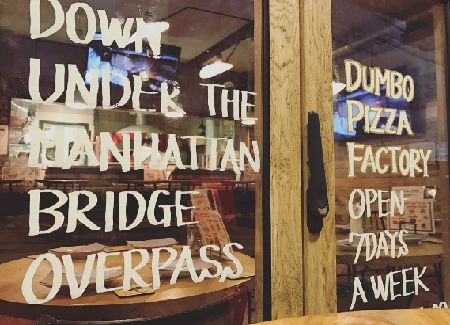 DOWN
UNDER THE
MANHATTAN
BRIDGE
OVERPASS
DUMBO
PIZZA
FACTORY
OPEN
7DAYS
A WEEK